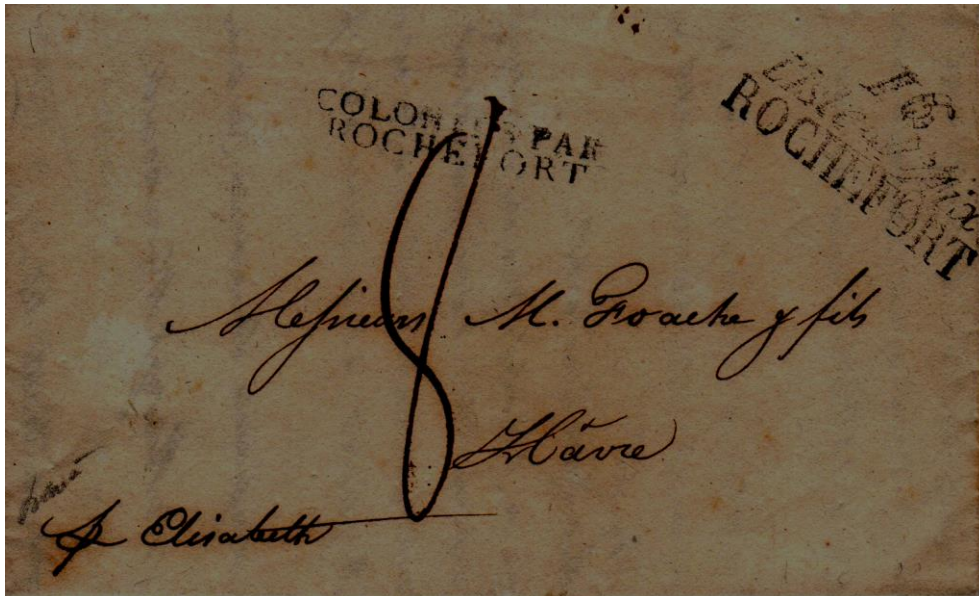 COLONIES PAR
ROCHEFORT
16
L'Isle d'Aix
ROCHEFORT
8
Messieurs M. Foache y fils
Hâvre
p Elisabeth